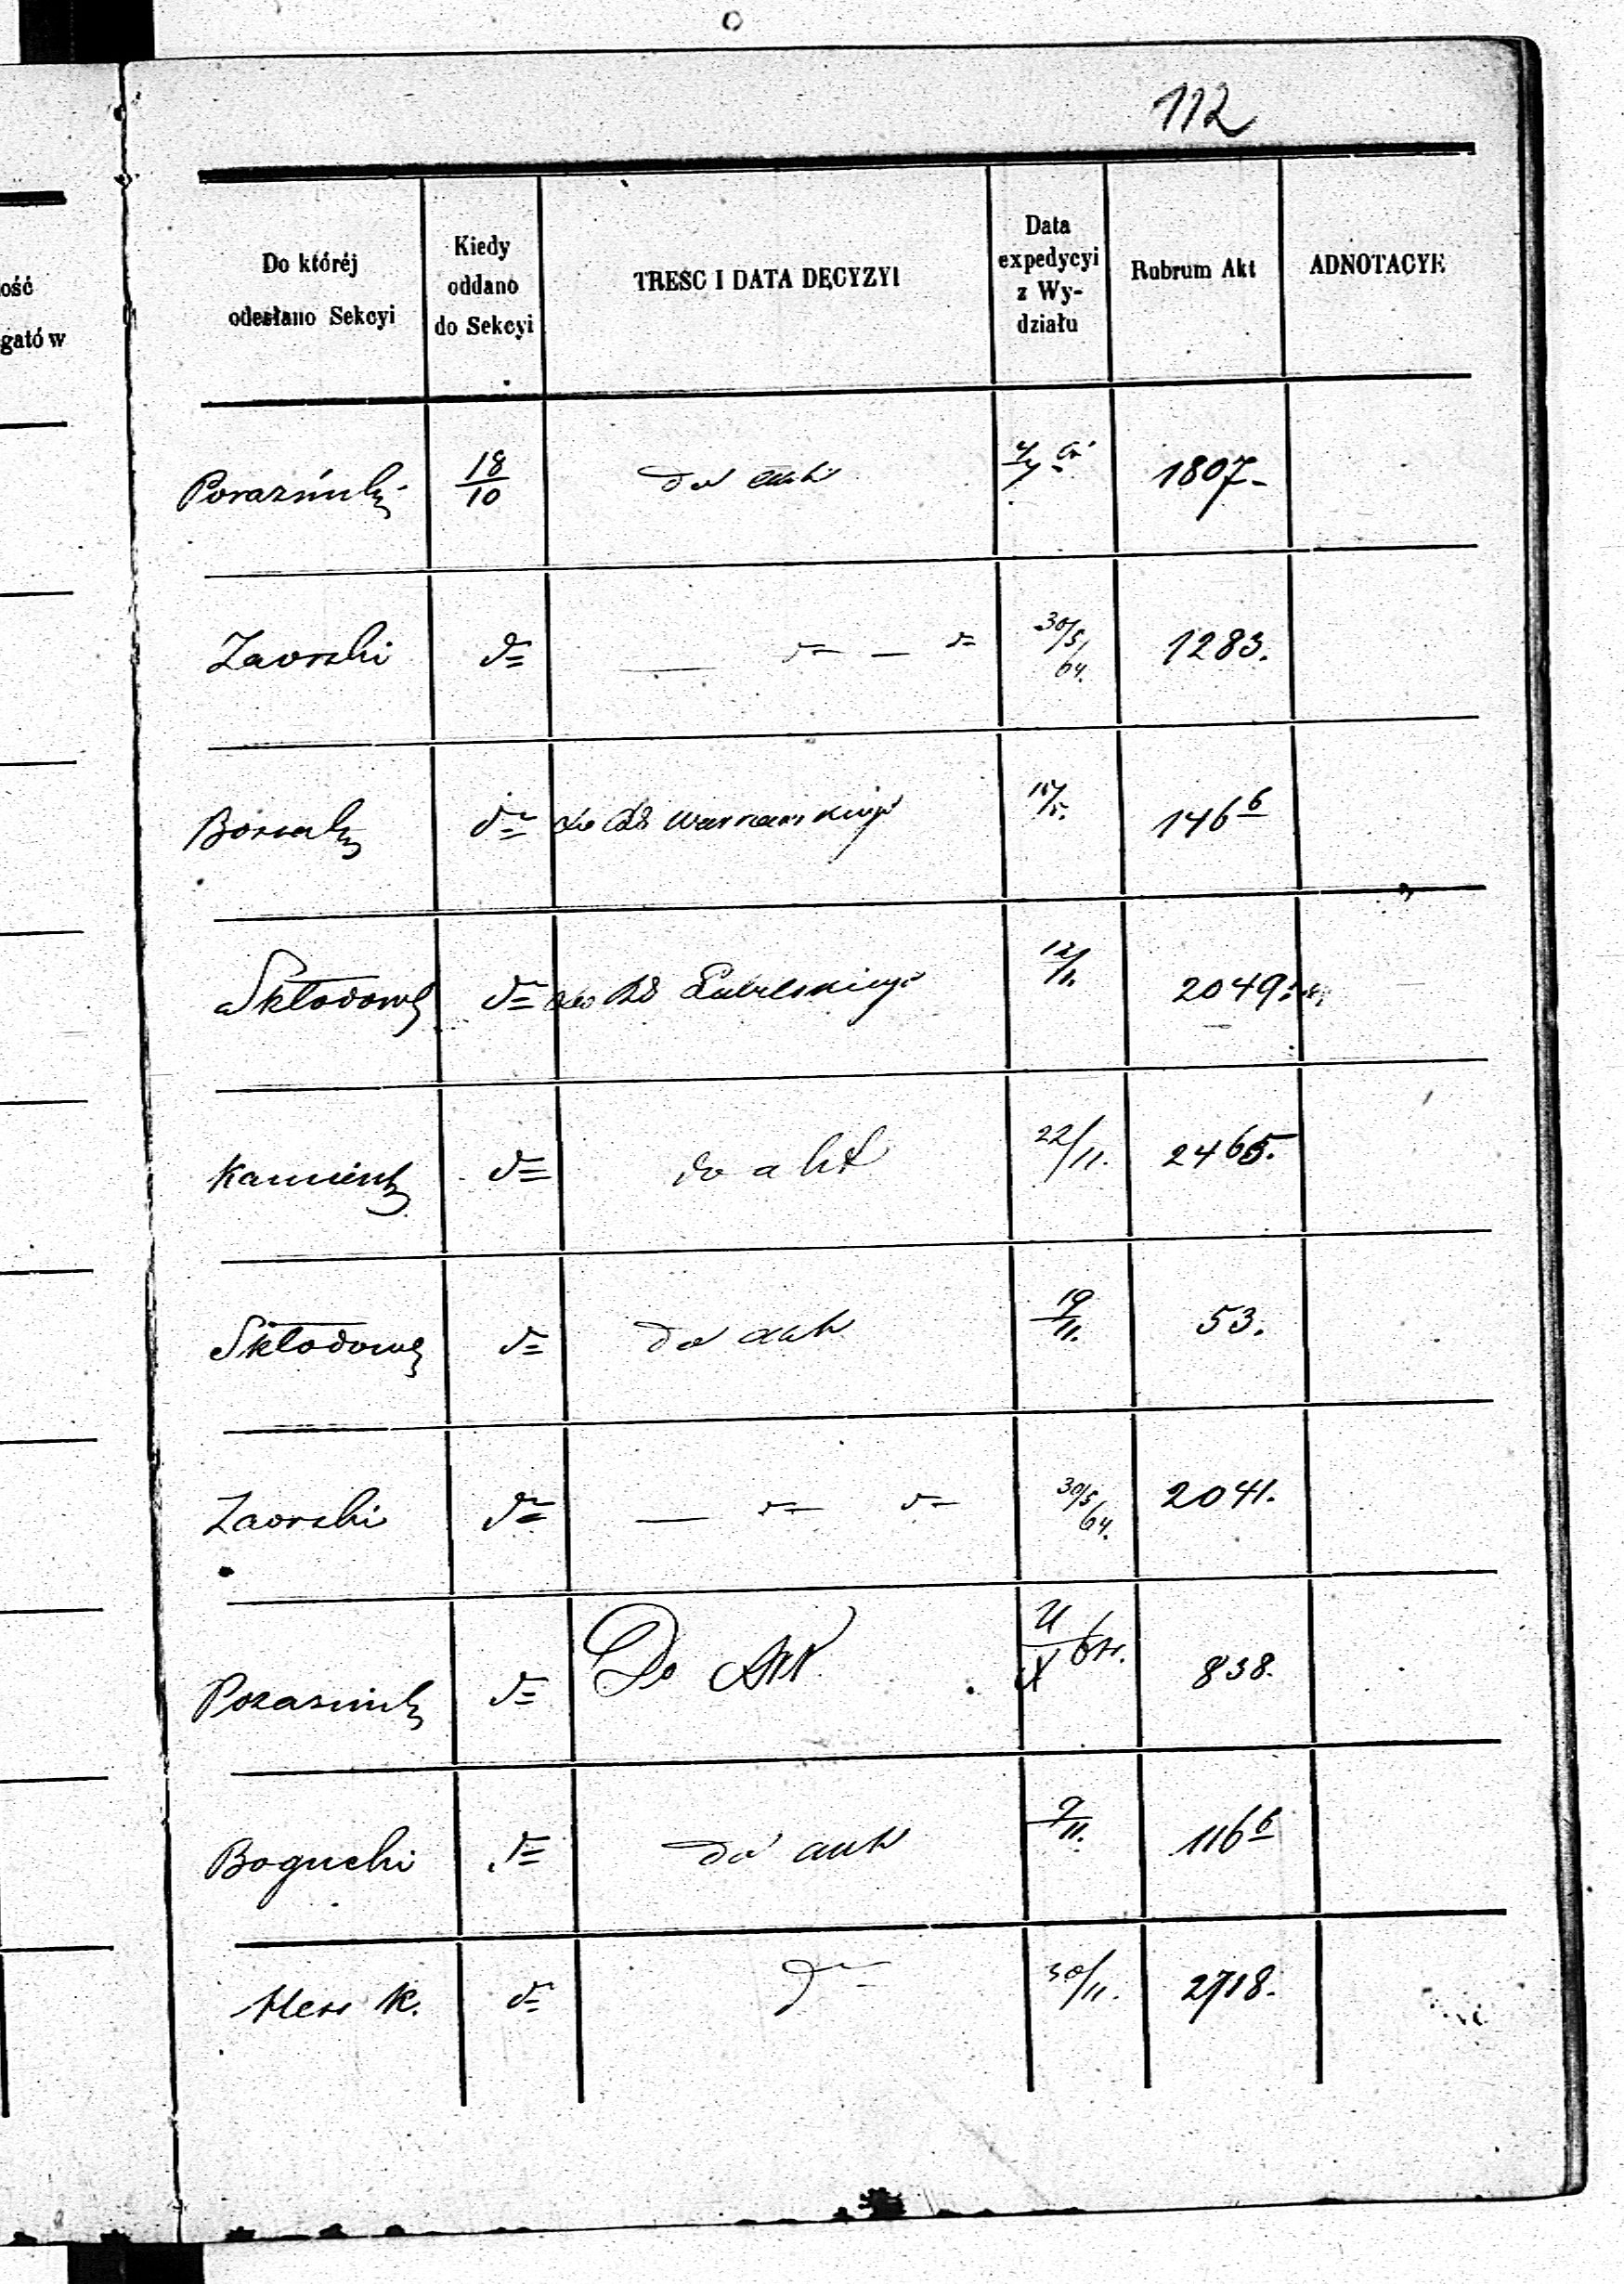 112
ość
gatów
Do któréj
odesłano Sekcyi
Kiedy
oddano
do Sekcyi
TREŚC I DATA DECYZYI
Data
expedycyi
z Wy-
działu
Rubrum Akt
ADNOTACYE
18/10 do akt 1807-
Zaorski d= — d= — d= 30/5/64. 1283.
d= do RG Warszawskiego 146 6
Skłodows d= do RG Lubelskiego 12/11. 2049.
Kamieńs d= do akt 22/11. 2465.
Skłodows d= do akt 19/11. 53.
Zaorski d= — d= d= 30/5/64. 2041.
d= Do Akt 838.
Bogucki d= do akt 9/11. 116 6
Hess K. d= d= 30/11. 2718.